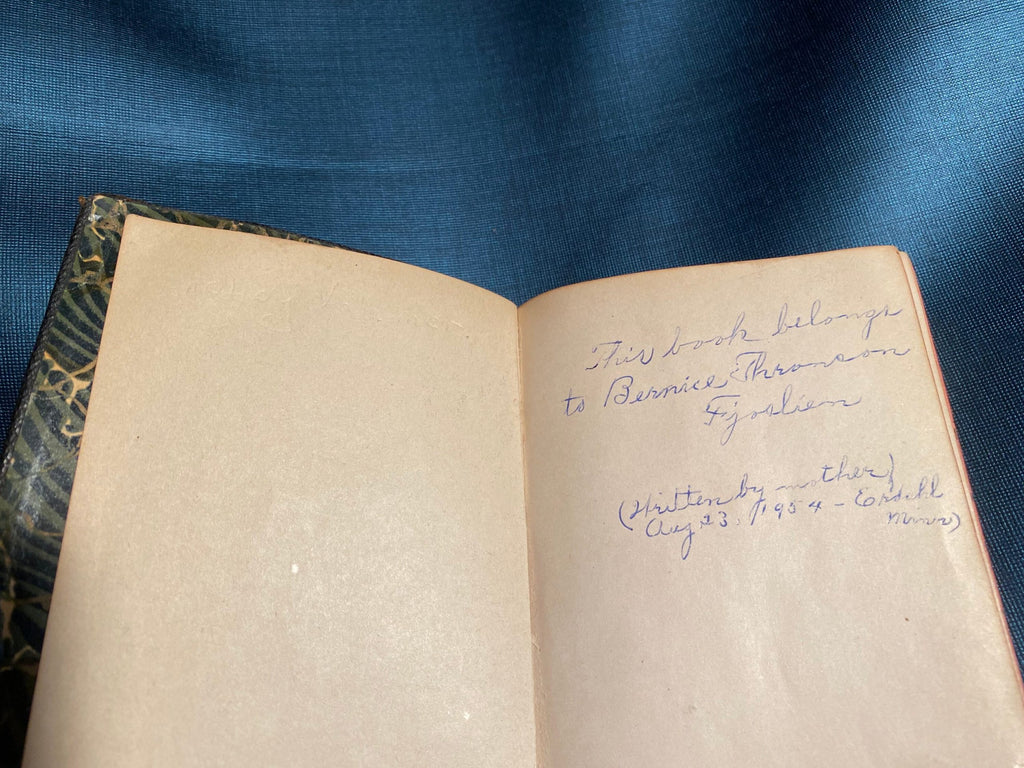 This book belongs
to Bernice Thronson
Fjoslien
(Written by mother)
Aug 23, 1954 - Erdahl
Minn)